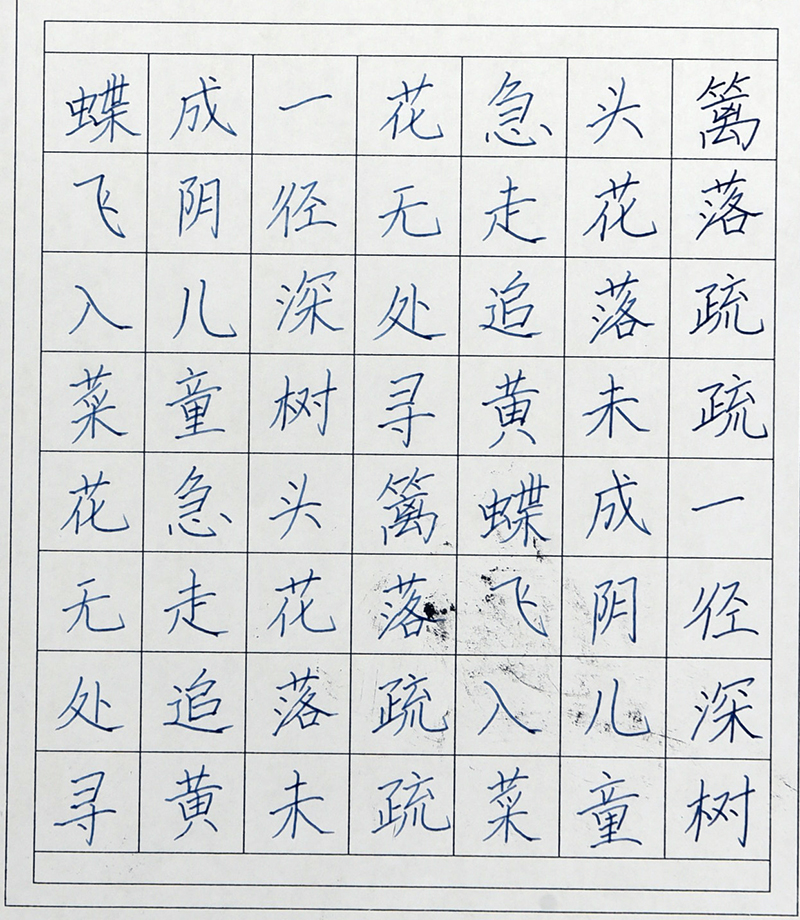 篱落疏疏一径深树
头花落未成阴儿童
急走追黄蝶飞入菜
花无处寻篱落疏疏
一径深树头花落未
成阴儿童急走追黄
蝶飞入菜花无处寻